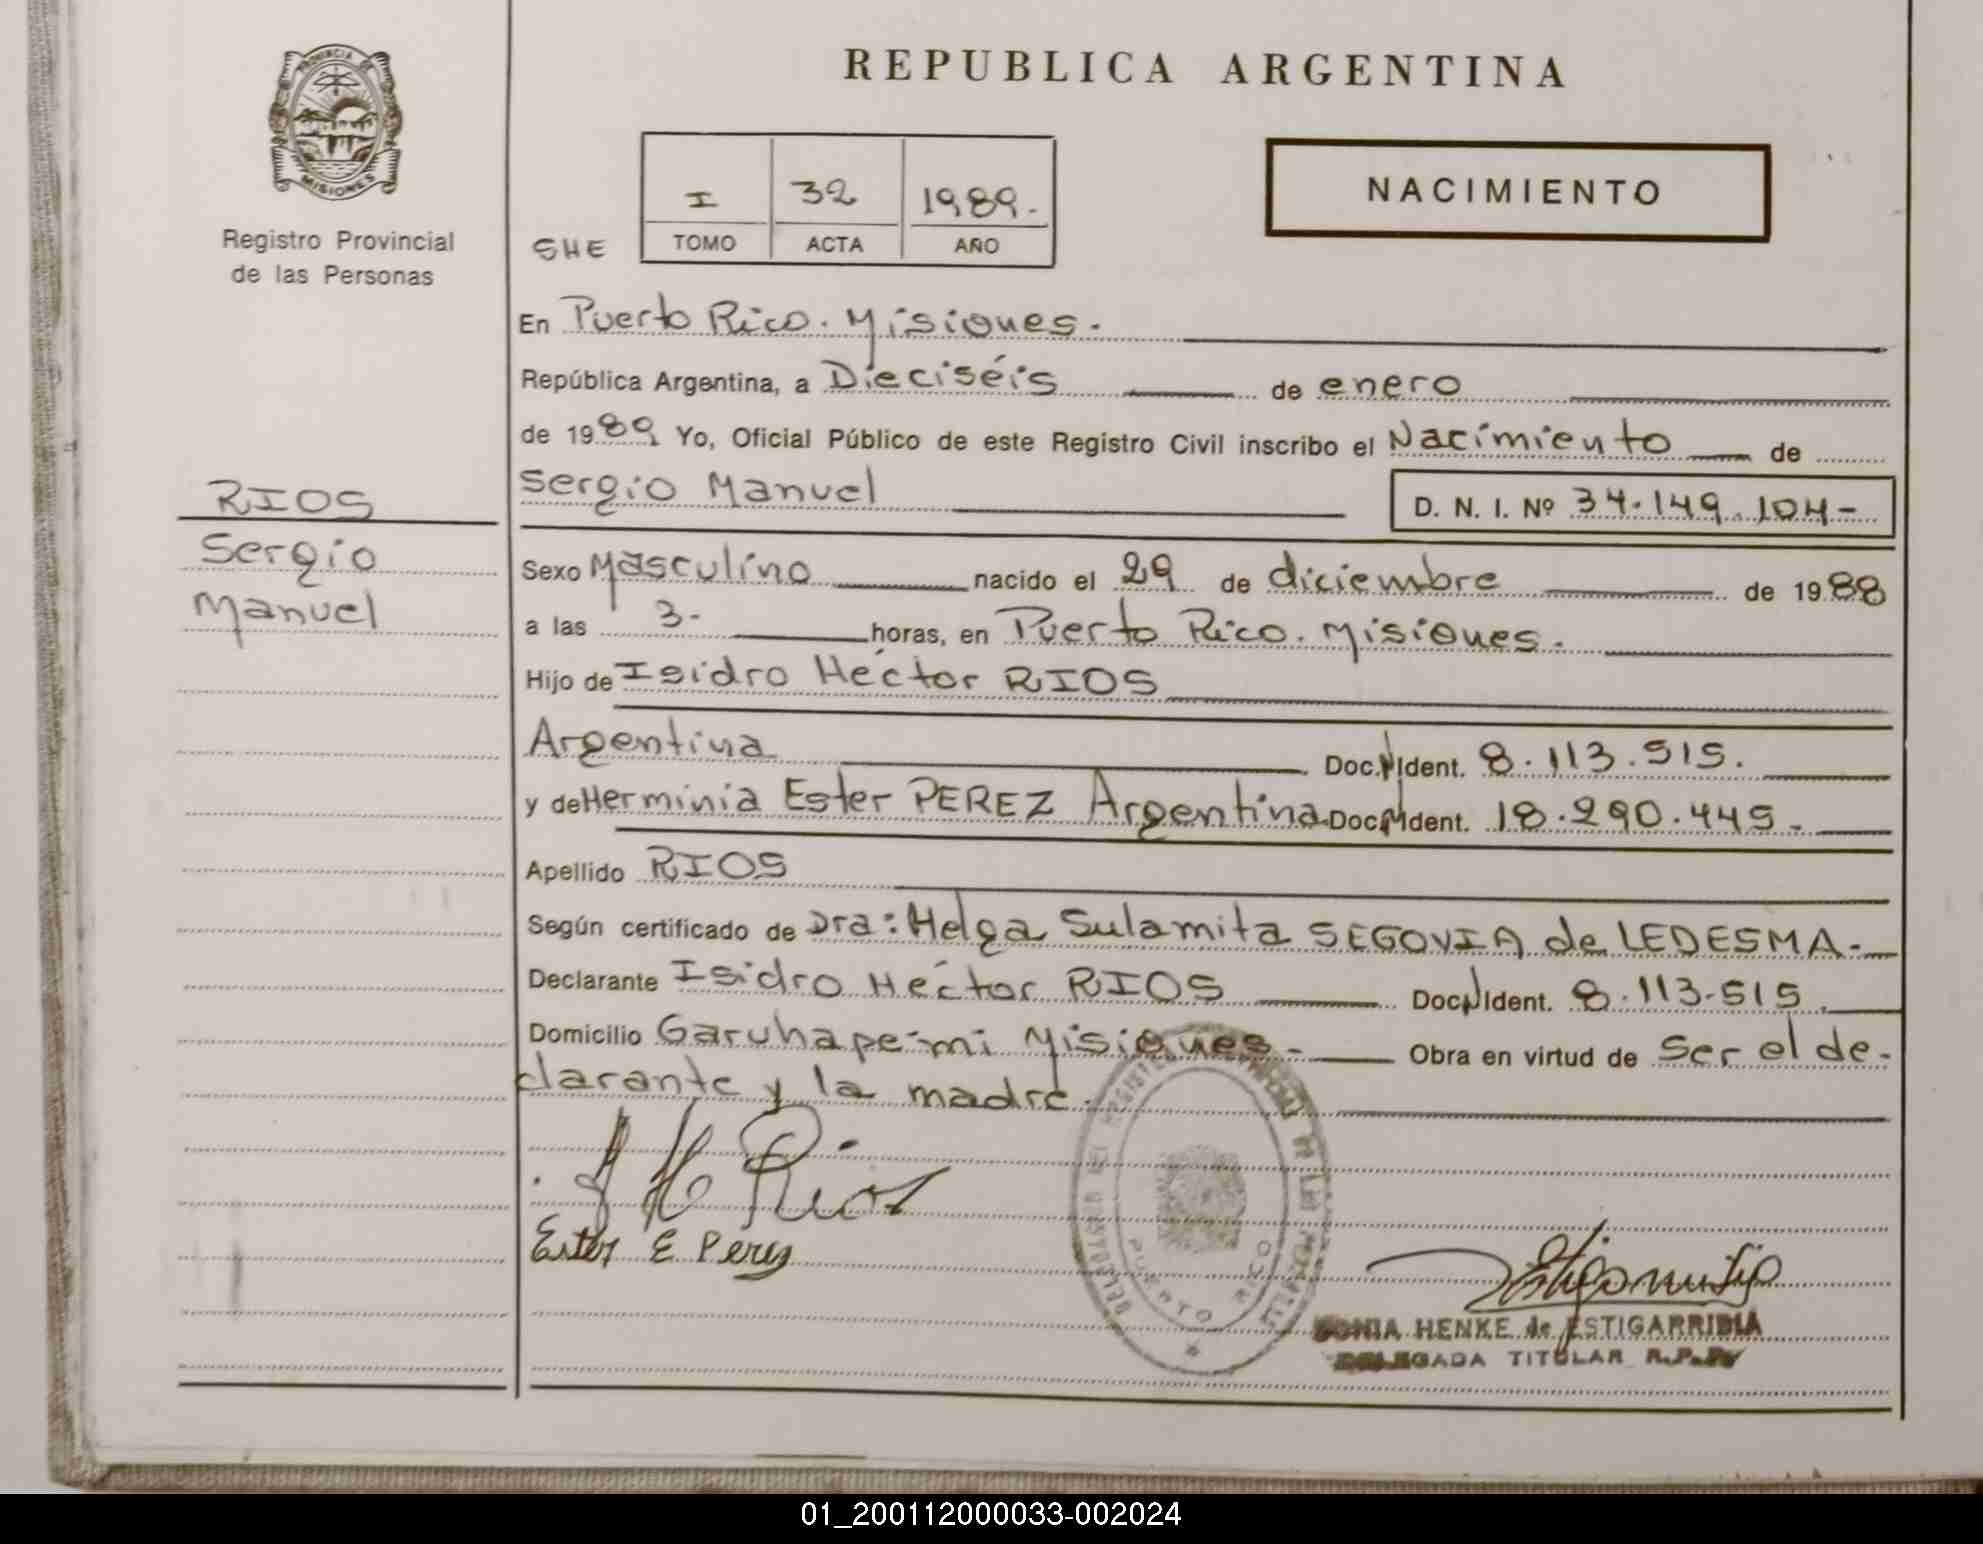 REPUBLICA ARGENTINA
PROVINCIA DE
MISIONES
Registro Provincial
de las Personas
NACIMIENTO
I 32 1989.-
SHE TOMO ACTA AÑO
En Puerto Rico. Misiones.
República Argentina, a Dieciséis de enero
de 1989 Yo, Oficial Público de este Registro Civil inscribo el Nacimiento de
Sergio Manuel D. N. I. Nº 34.149.104-
RIOS
Sergio
Manuel
Sexo Masculino nacido el 29 de diciembre de 1988
a las 3- horas, en Puerto Rico. Misiones.
Hijo de Isidro Héctor RIOS
Argentina Doc.NIdent. 8.113.515.
y de Herminia Ester PEREZ Argentina Doc.NIdent. 18.290.445.-
Apellido RIOS
Según certificado de Dra: Helga Sulamita SEGOVIA de LEDESMA.-
Declarante Isidro Héctor RIOS Doc.NIdent. 8.113.515.
Domicilio Garuhape-mi Misiones.- Obra en virtud de Ser el de-
clarante y la madre.
I H Rios
Ester E Perez
PUERTO RICO
SONIA HENKE de ESTIGARRIBIA
DELEGADA TITULAR R.P.P.
01_200112000033-002024